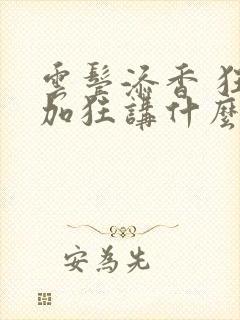 雲鬓添香 狂
加狂講什麼
安為先